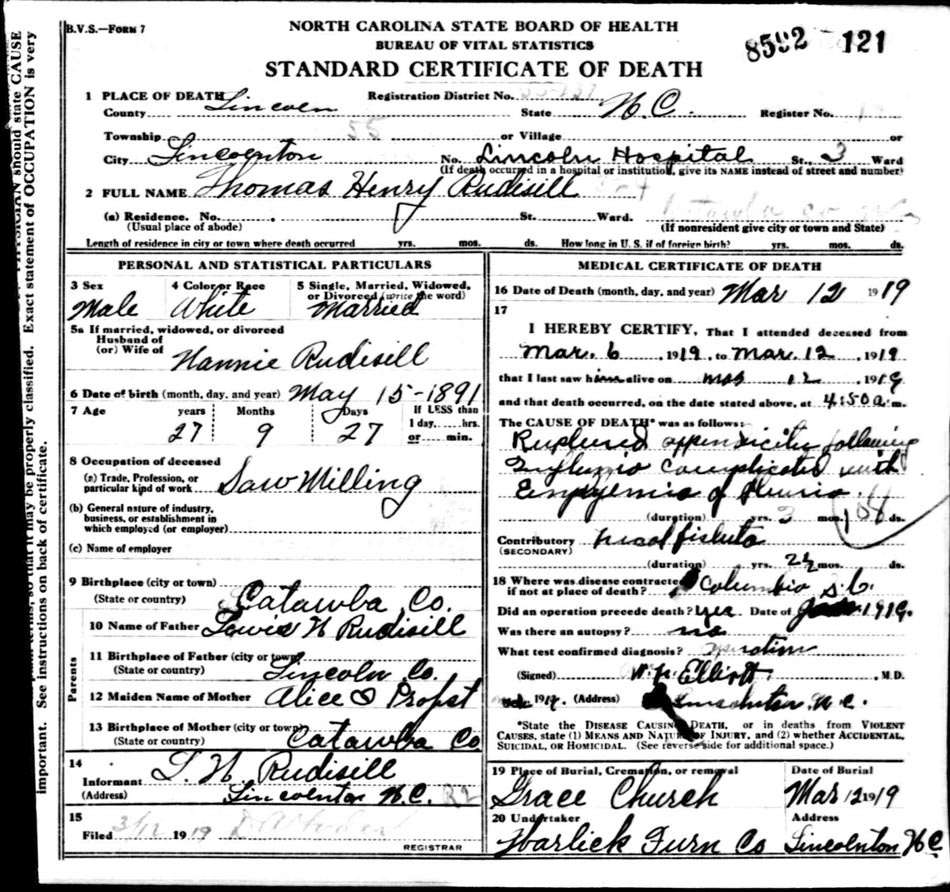 B.V.S.—FORM 7
NORTH CAROLINA STATE BOARD OF HEALTH
BUREAU OF VITAL STATISTICS
STANDARD CERTIFICATE OF DEATH
8592 121
1 PLACE OF DEATH Registration District No.
County Lincoln State N.C. Register No.
Township 55 or Village or
City Lincolnton No. Lincoln Hospital St., 3 Ward
(If death occurred in a hospital or institution, give its NAME instead of street and number)
2 FULL NAME Thomas Henry Rudisill
(a) Residence. No. St. Ward. Catawba Co
(Usual place of abode) (If nonresident give city or town and State)
Length of residence in city or town where death occurred yrs. mos. ds. How long in U. S. if of foreign birth? yrs. mos. ds.
PERSONAL AND STATISTICAL PARTICULARS
3 Sex 4 Color or Race 5 Single, Married, Widowed, or Divorced (write the word)
Male White Married
5a If married, widowed, or divorced
Husband of
(or) Wife of Nannie Rudisill
6 Date of birth (month, day, and year) May 15-1891
7 Age years Months Days If LESS than
1 day, hrs.
27 9 27 or min.
8 Occupation of deceased
(a) Trade, Profession, or
particular kind of work Saw Milling
(b) General nature of industry,
business, or establishment in
which employed (or employer)
(c) Name of employer
9 Birthplace (city or town)
(State or country) Catawba Co.
Parents
10 Name of Father Lowis N Rudisill
11 Birthplace of Father (city or town)
(State or country) Lincoln Co.
12 Maiden Name of Mother Alice S Propst
13 Birthplace of Mother (city or town)
(State or country) Catawba Co
14
Informant L. N. Rudisill
(Address) Lincolnton N.C. R2
15
Filed 3/12 1919
REGISTRAR
MEDICAL CERTIFICATE OF DEATH
16 Date of Death (month, day, and year) Mar 12 1919
17
I HEREBY CERTIFY, That I attended deceased from
Mar. 6, 1919, to Mar. 12, 1919
that I last saw him alive on mar 12, 1919
and that death occurred, on the date stated above, at 4:50 a. m.
The CAUSE OF DEATH* was as follows:
Ruptured appendicitis following
Influenza complicated with
Empyemia of Pleuria.
(duration) yrs. 3 mos. ds.
Contributory
(SECONDARY)
(duration) yrs. 2½ mos. ds.
18 Where was disease contracted
if not at place of death? Columbia S.C.
Did an operation precede death? Yes Date of 1919.
Was there an autopsy? no
What test confirmed diagnosis? operation
(Signed) Elliott, M.D.
1919. (Address) Lincolnton N.C.
*State the DISEASE CAUSING DEATH, or in deaths from VIOLENT
CAUSES, state (1) MEANS AND NATURE OF INJURY, and (2) whether ACCIDENTAL,
SUICIDAL, OR HOMICIDAL. (See reverse side for additional space.)
19 Place of Burial, Cremation, or removal Date of Burial
Grace Church Mar 12 1919
20 Undertaker Address
Warlick Furn Co Lincolnton N C
PHYSICIAN should state CAUSE
so that it may be properly classified. Exact statement of OCCUPATION is very
important. See instructions on back of certificate.